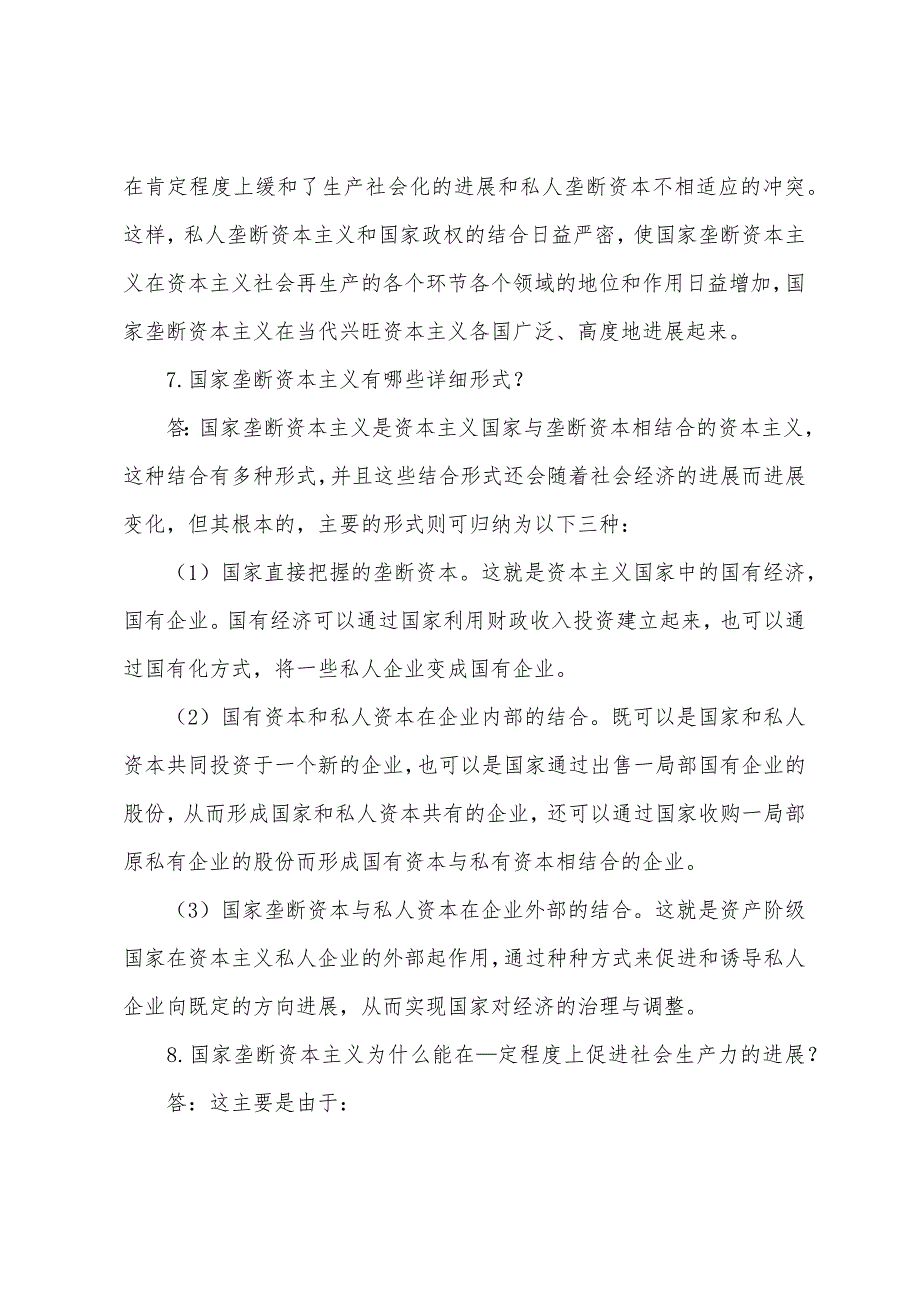 在肯定程度上缓和了生产社会化的进展和私人垄断资本不相适应的冲突。
这样，私人垄断资本主义和国家政权的结合日益严密，使国家垄断资本主
义在资本主义社会再生产的各个环节各个领域的地位和作用日益增加，国
家垄断资本主义在当代兴旺资本主义各国广泛、高度地进展起来。
7.国家垄断资本主义有哪些详细形式？
答：国家垄断资本主义是资本主义国家与垄断资本相结合的资本主义，
这种结合有多种形式，并且这些结合形式还会随着社会经济的进展而进展
变化，但其根本的，主要的形式则可归纳为以下三种：
（1）国家直接把握的垄断资本。这就是资本主义国家中的国有经济，
国有企业。国有经济可以通过国家利用财政收入投资建立起来，也可以通
过国有化方式，将一些私人企业变成国有企业。
（2）国有资本和私人资本在企业内部的结合。既可以是国家和私人
资本共同投资于一个新的企业，也可以是国家通过出售一局部国有企业的
股份，从而形成国家和私人资本共有的企业，还可以通过国家收购一局部
原私有企业的股份而形成国有资本与私有资本相结合的企业。
（3）国家垄断资本与私人资本在企业外部的结合。这就是资产阶级
国家在资本主义私人企业的外部起作用，通过种种方式来促进和诱导私人
企业向既定的方向进展，从而实现国家对经济的治理与调整。
8.国家垄断资本主义为什么能在—定程度上促进社会生产力的进展？
答：这主要是由于：